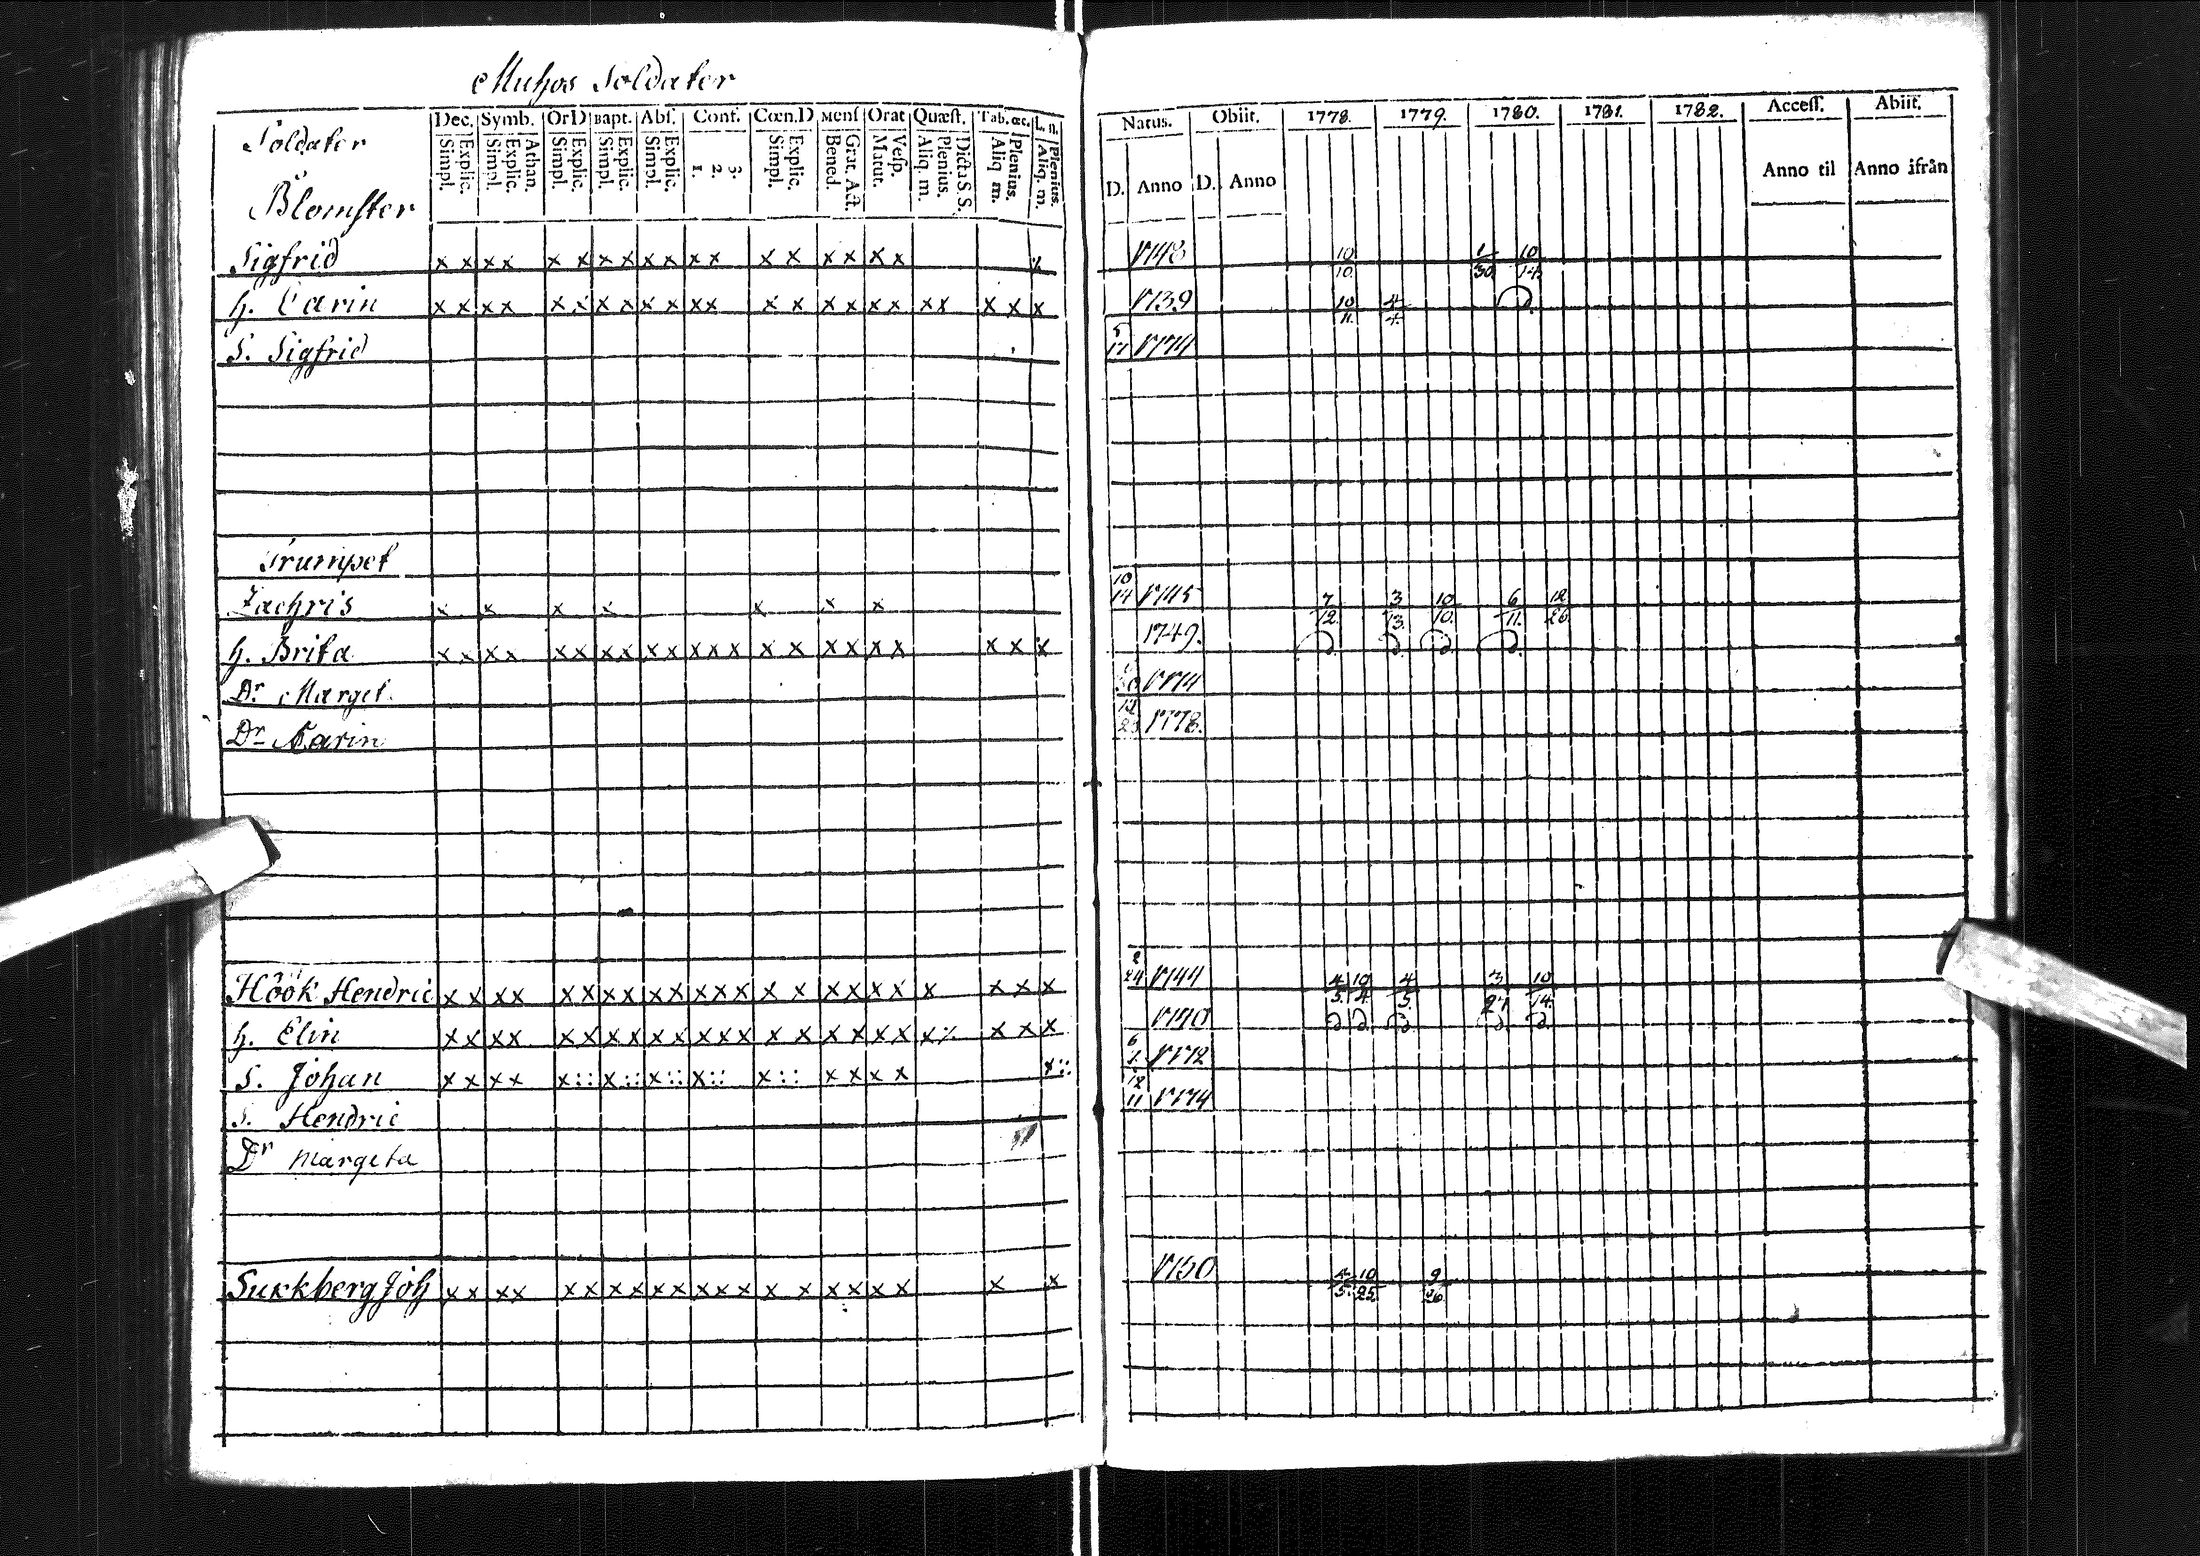 Muhos Soldater
Dec. Symb. OrD Bapt. Abs. Conf. Cœn.D Mens Orat Quæst. Tab. œc. L. n.
Simpl. Explic. Simpl. Explic. Athan. Simpl. Explic. Simpl. Explic. Simpl. Explic. 1. 2 3. Simpl. Explic. Bened. Grat. Act. Matut. Vesp. Aliq. m. Plenius. Dicta S. S. Aliq m. Plenius. Aliq. m. Plenius.
Soldater
Blomster
Sigfrid x x x x x x x x x x x x x x x x x x
h. Carin x x x x x x x x x x x x x x x x x x x x x x x
S. Sigfrid
Trumpet
Zachris x x x x x x x
h. Brita x x x x x x x x x x x x x x x x x x x x x x
Dr Marget.
Dr Karin
Höök Hendric x x x x x x x x x x x x x x x x x x x x x x x
h. Elin x x x x x x x x x x x x x x x x x x x x x x x
S. Johan x x x x x x x x x x x x x x
S. Hendric
Dr Margeta
Sukkberg Joh x x x x x x x x x x x x x x x x x x x x x
Natus. Obiit. 1778. 1779. 1780. 1781. 1782. Access. Abiit.
D. Anno D. Anno Anno til Anno ifrån
1748 10/10. 1/30 10/14.
1739 10/11. 4/4.
5/17 1774
10/14 1745 7/12. 3/13. 10/10. 6/11. 12/26
1749.
1774
12/23 1778.
2/24 1744 4/5. 10/4. 4/5. 3/27 10/14.
1740
6/1. 1772
12/11 1774
1750 4/5. 10/25. 9/26